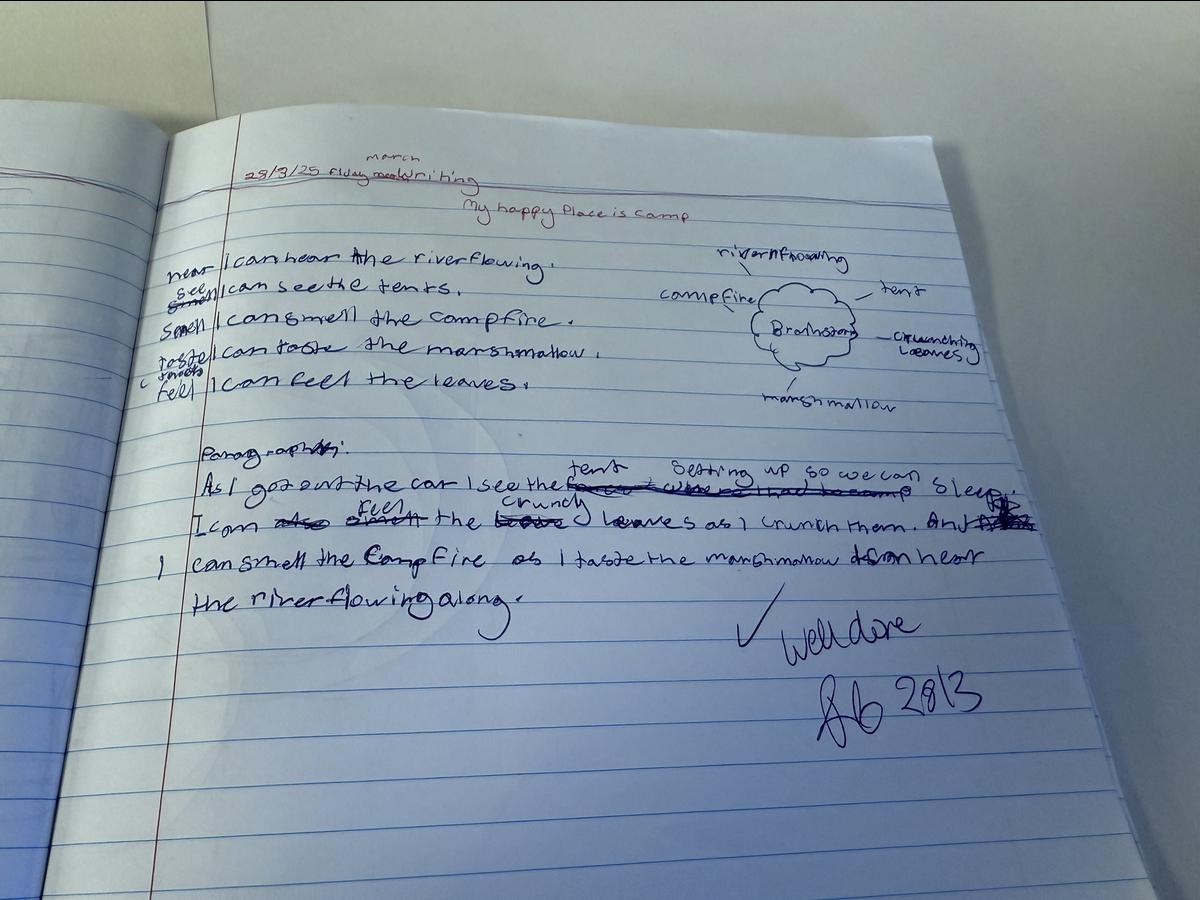 march
28/3/25 Friday Writing
My happy Place is camp
hear I can hear the river flowing.
see I can see the tents.
smell I can smell the campfire.
taste I can taste the marshmallow.
feel I can feel the leaves.
river flowing
campfire
tent
Brainstorm
crunching
leaves
marshmallow
Paragraph:
tent setting up so we can
As I got out the car I see the sleep.
feel crunchy
I can the leaves as I crunch them. And
I can smell the campfire as I taste the marshmallow hear
the river flowing along.
Well done
28/3